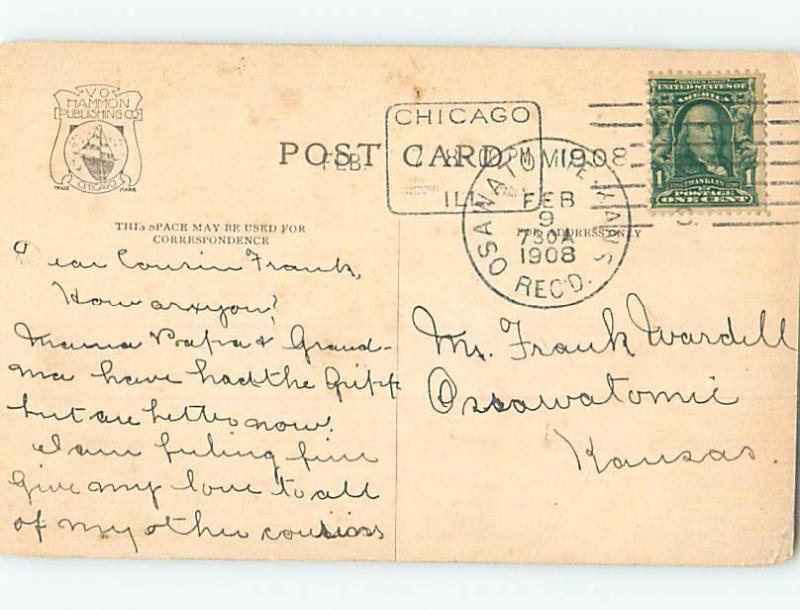 V.O.
HAMMON
PUBLISHING CO.
CHICAGO
TRADE MARK
POST CARD
CHICAGO
FEB. 8 PM 1908
ILL.
OSAWATOMIE, KANS
FEB
9
730A
1908
REC'D.
UNITED STATES OF
AMERICA
1 FRANKLIN 1
POSTAGE
ONE CENT
THIS SPACE MAY BE USED FOR
CORRESPONDENCE
FOR ADDRESS ONLY
Dear Cousin Frank,
How are you?
Mama Papa & Grand-
ma have had the Gripp
but are better now.
I am feeling fine
Give my love to all
of my other cousins
Mr. Frank Wardell
Ossawatomie
Kansas.